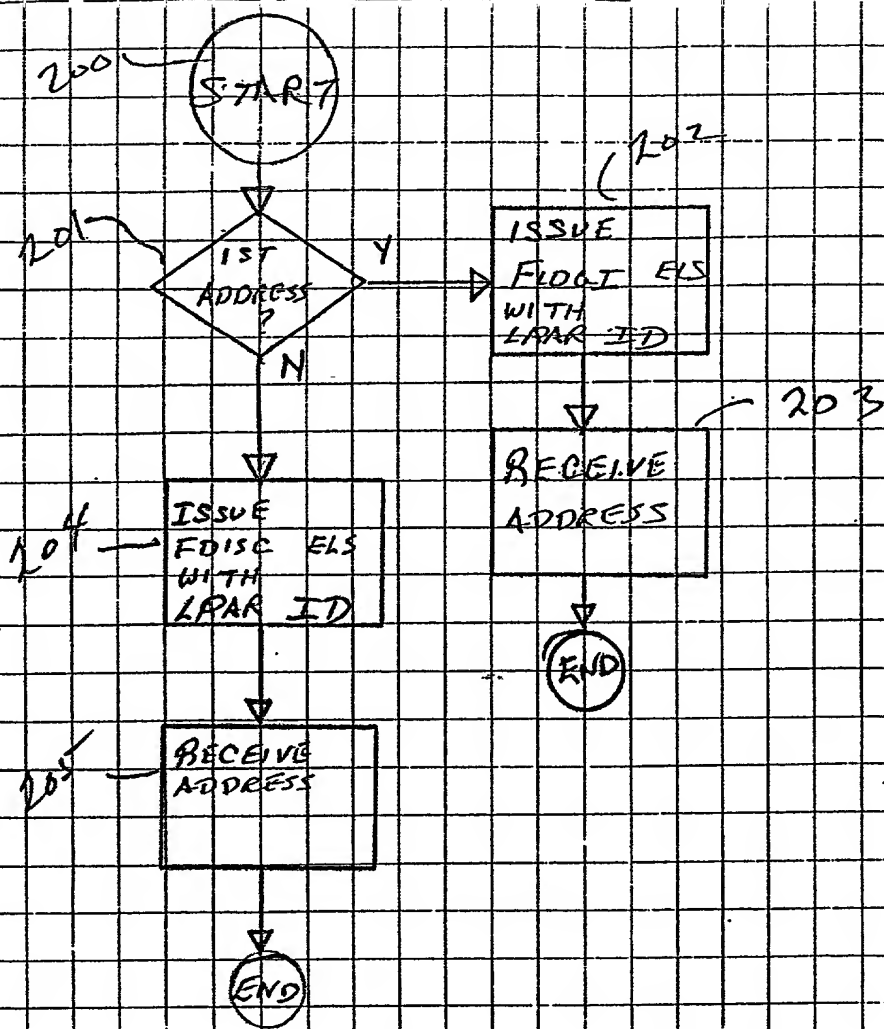 200
START
201
1ST
ADDRESS
?
Y
N
202
ISSUE
FLOGI ELS
WITH
LPAR ID
203
RECEIVE
ADDRESS
END
204
ISSUE
FDISC ELS
WITH
LPAR ID
205
RECEIVE
ADDRESS
END